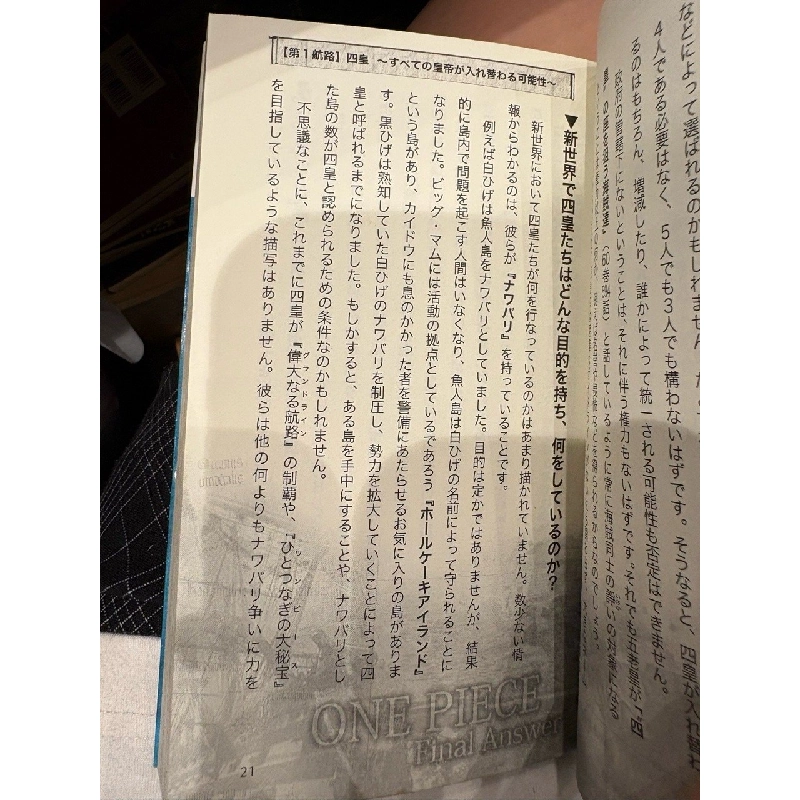 などによって選ばれるのかもしれません。
4人である必要はなく、5人でも3人でも構わないはずです。そうなると、四皇が入れ替わ
るのはもちろん、増減したり、誰かによって統一される可能性も否定はできません。
政府の管轄下にないということは、それに伴う権力もないはずです。それでも五老星が「"四
と話しているように常に海賊同士の争いの対象になる
【第1航路】四皇 〜すべての皇帝が入れ替わる可能性〜
▼新世界で四皇たちはどんな目的を持ち、何をしているのか?
新世界において四皇たちが何を行なっているのかはあまり描かれていません。数少ない情
報からわかるのは、彼らが『ナワバリ』を持っていることです。
例えば白ひげは魚人島をナワバリとしていました。目的は定かではありませんが、結果
的に島内で問題を起こす人間はいなくなり、魚人島は白ひげの名前によって守られることに
なりました。ビッグ・マムには活動の拠点としているであろう『ホールケーキアイランド』
という島があり、カイドウにも息のかかった者を警備にあたらせるお気に入りの島がありま
す。黒ひげは熟知していた白ひげのナワバリを制圧し、勢力を拡大していくことによって四
皇と呼ばれるまでになりました。もしかすると、ある島を手中にすることや、ナワバリとし
た島の数が四皇と認められるための条件なのかもしれません。
不思議なことに、これまでに四皇が『偉大なる航路』の制覇や、『ひとつなぎの大秘宝』
グランドライン
ワンピース
を目指しているような描写はありません。彼らは他の何よりもナワバリ争いに力を
ONE PIECE
Final Answer
21